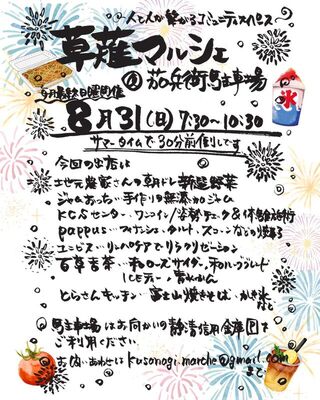 人と人が繋がるコミュニティスペース
草薙マルシェ
@ 茄兵衛駐車場
毎月最終日曜開催
氷
8月31(日) 7:30〜10:30
サマータイムで30分前倒しです
今回の出店は
地元農家さんの朝ドレ新鮮野菜
ジャムおっちゃん 手作り無添加ジャム
KCSセンター ワンコイン/姿勢チェック&体験施術
pappus… マフィン、タルト、スコーンなどの焼き
エニシス… リハケアでリラクゼーション
百草苦茶… 和ローズサイダー、和ハーブブレンド
ICEティー/青水みかん
とらさんキッチン… 富士山焼きそば、かき氷
など
駐車場はお向かいの静清信用金庫を
ご利用ください
お問い合わせは kusanagi.marche@gmail.com
まで